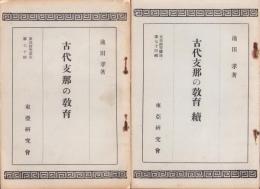 東亞研究講座 第七十輯
池田孝著
古代支那の教育
東亞研究會
東亞研究講座 第七十四輯
池田孝著
古代支那の教育 續
東亞研究會